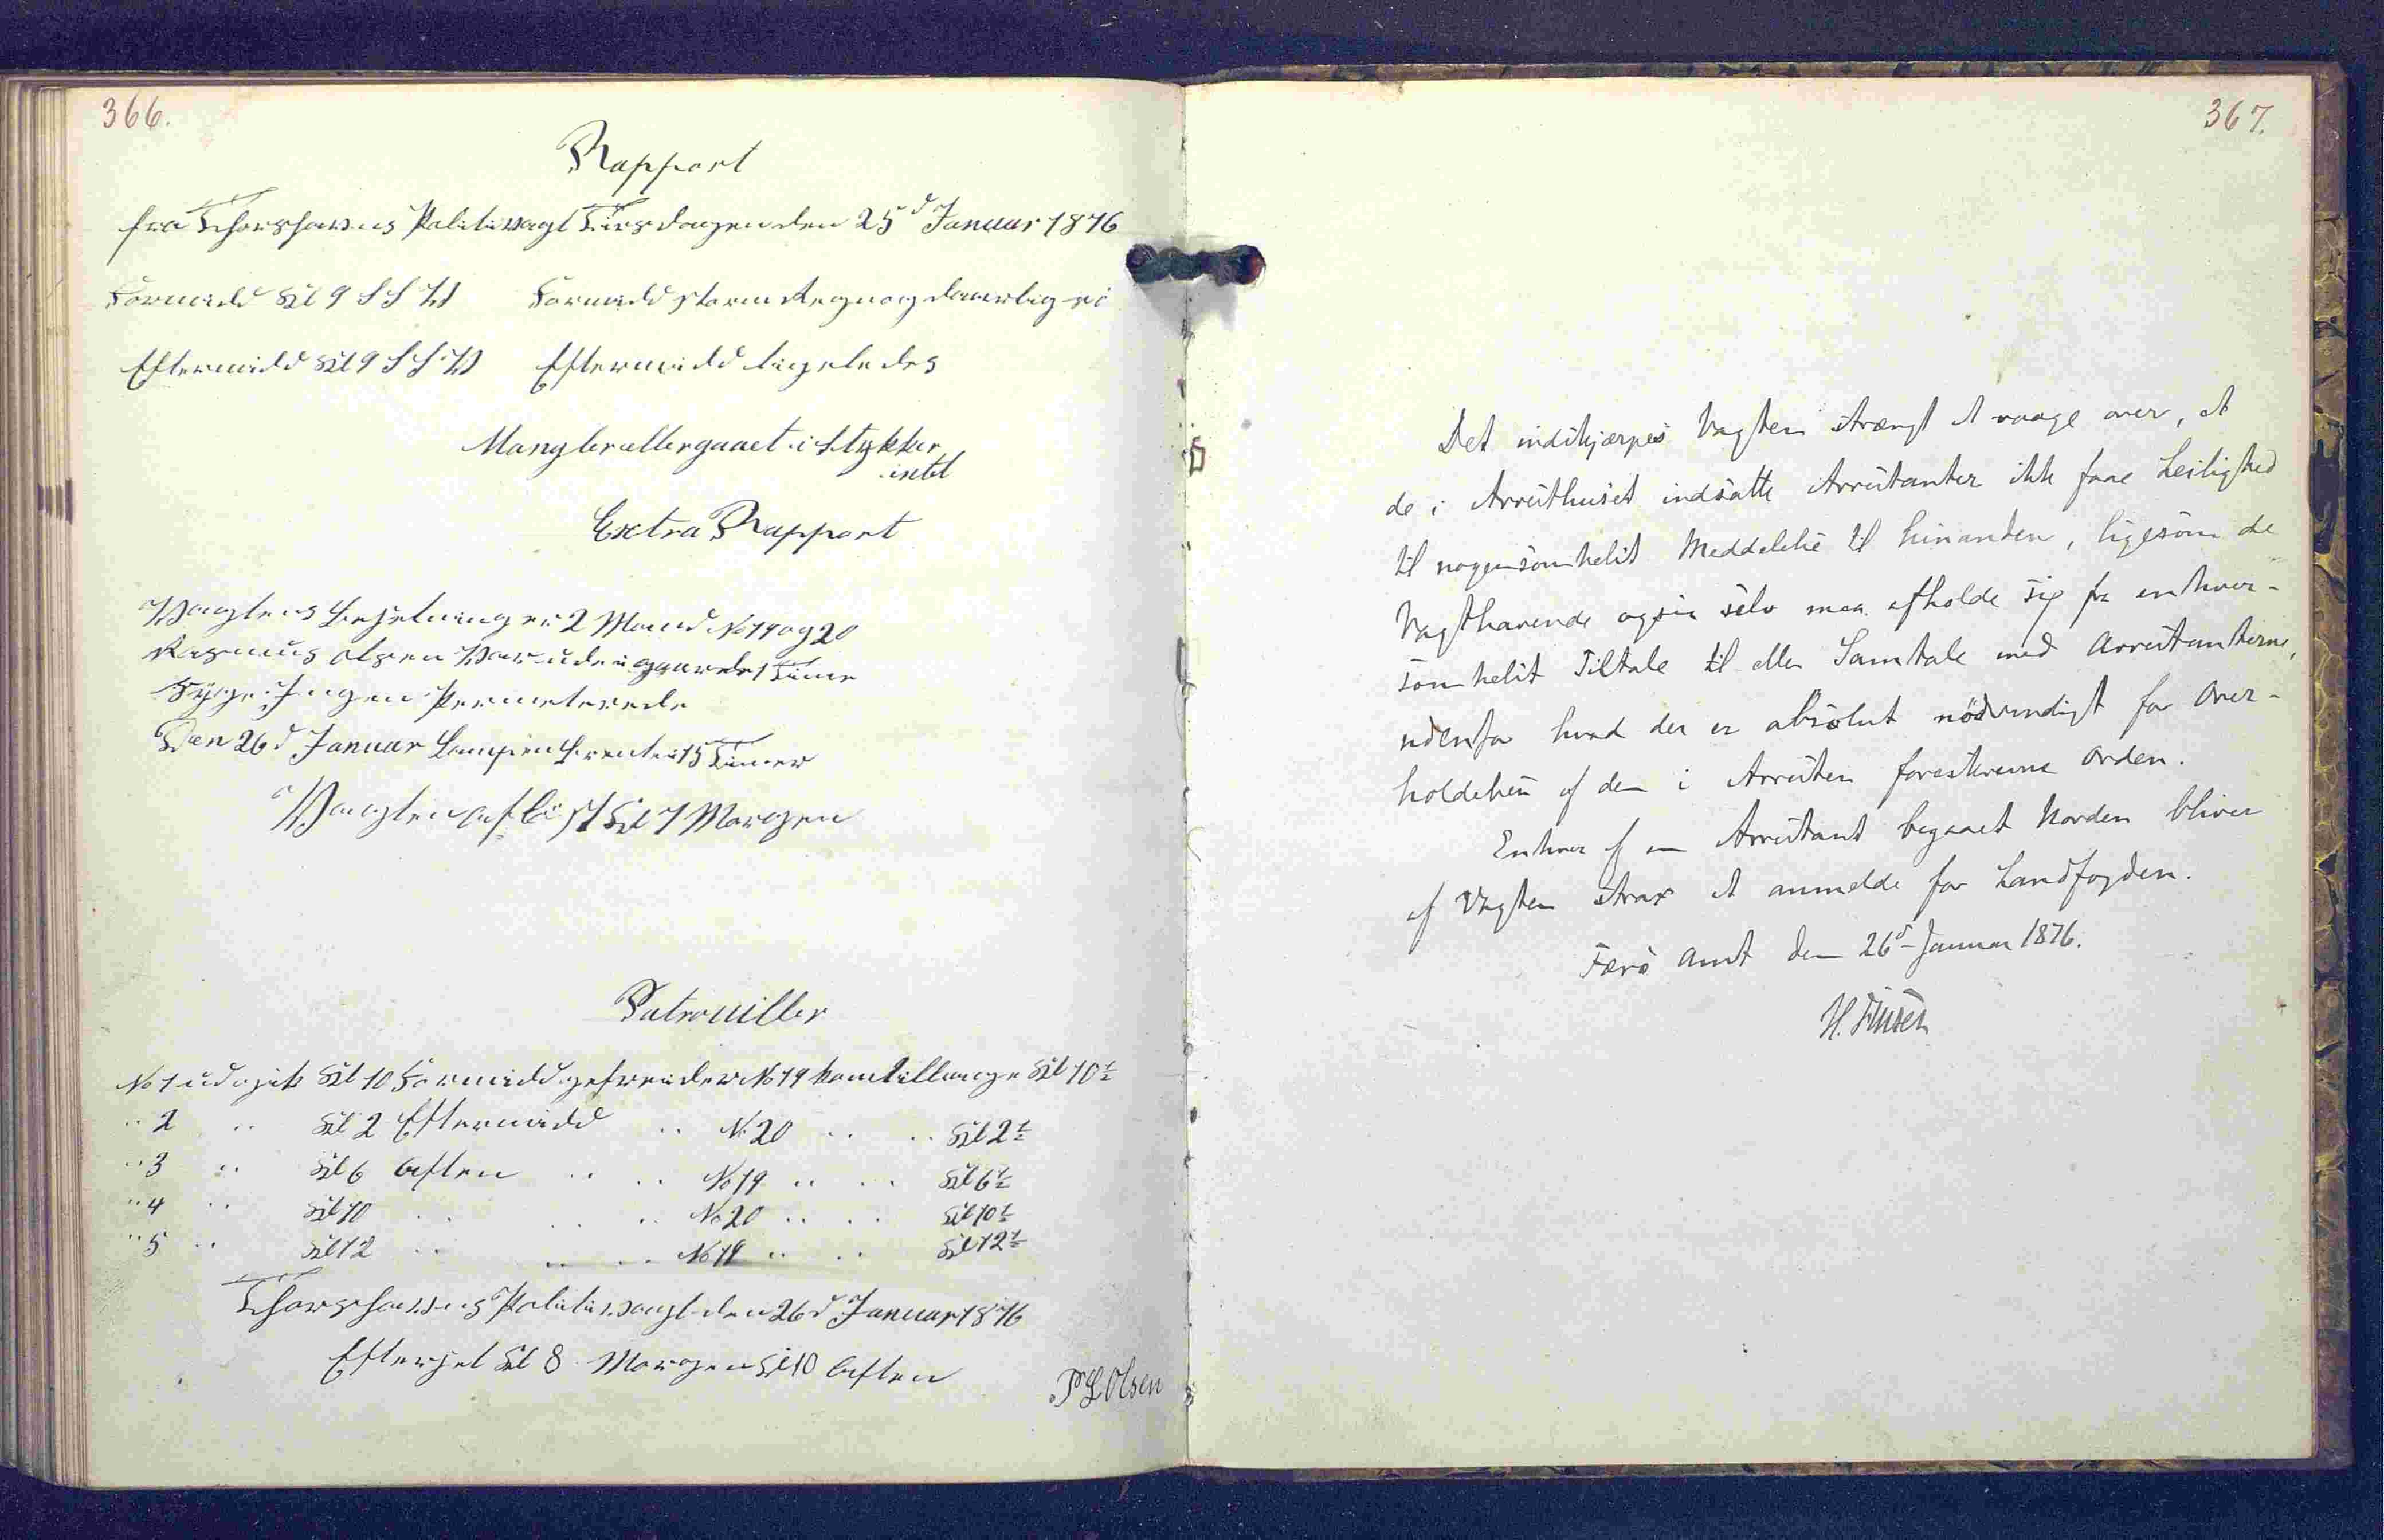 366.
Rapport
fra Thorshavns Politivagt Tirsdagen den 25d Januar 1876
Formidd Kl 9 S S W Formidd storm Regn og daarlig
Eftermidd Kl 9 S S W Eftermidd ligeledes
Mangler eller gaaet i Stykker
intet
Extra Rapport
Vagtens Besetning er 2 Mand No 19 og 20
Rasmus Olsen Var ude i gaarden 1 Time
Syge Ingen Permeterede
Den 26d Januar Lampen brente i 15 Timer
Vagten aflöst Kl 7 Morgen
Patrouiller
No 1 udgik Kl 10 Formidd gefreider No 19 kom tilbage Kl 10 1/2
" 2 " Kl 2 Eftermidd " No 20 " " Kl 2 1/2
" 3 " Kl 6 Aften " " No 19 " " Kl 6 1/2
" 4 " Kl 10 " " No 20 " " Kl 10 1/2
" 5 " Kl 12 " " " No 19 " " Kl 12 1/2
Thorshavns Politivagt den 26d Januar 1876
Efterset Kl 8 Morgen Kl 10 Aften
P L Olsen
367.
Det indskjærpes Vagten strængt at vaage over, at
de i Arresthuset indsatte Arrestanter ikke faae Leilighed
til nogensomhelst Meddelelse til hinanden, ligesom de
Vagthavende ogsaa selv maa afholde sig fra enhver-
somhelst Tiltale til eller Samtale med Arrestanterne,
udenfor hvad der er absolut nödvendigt for Over-
holdelsen af den i Arresten foreskrevne Orden.
Enhver af en Arrestant begaaet Uorden bliver
af Vagten strax at anmelde for Landfogden.
Færö Amt den 26d Januar 1876.
H. Finsen